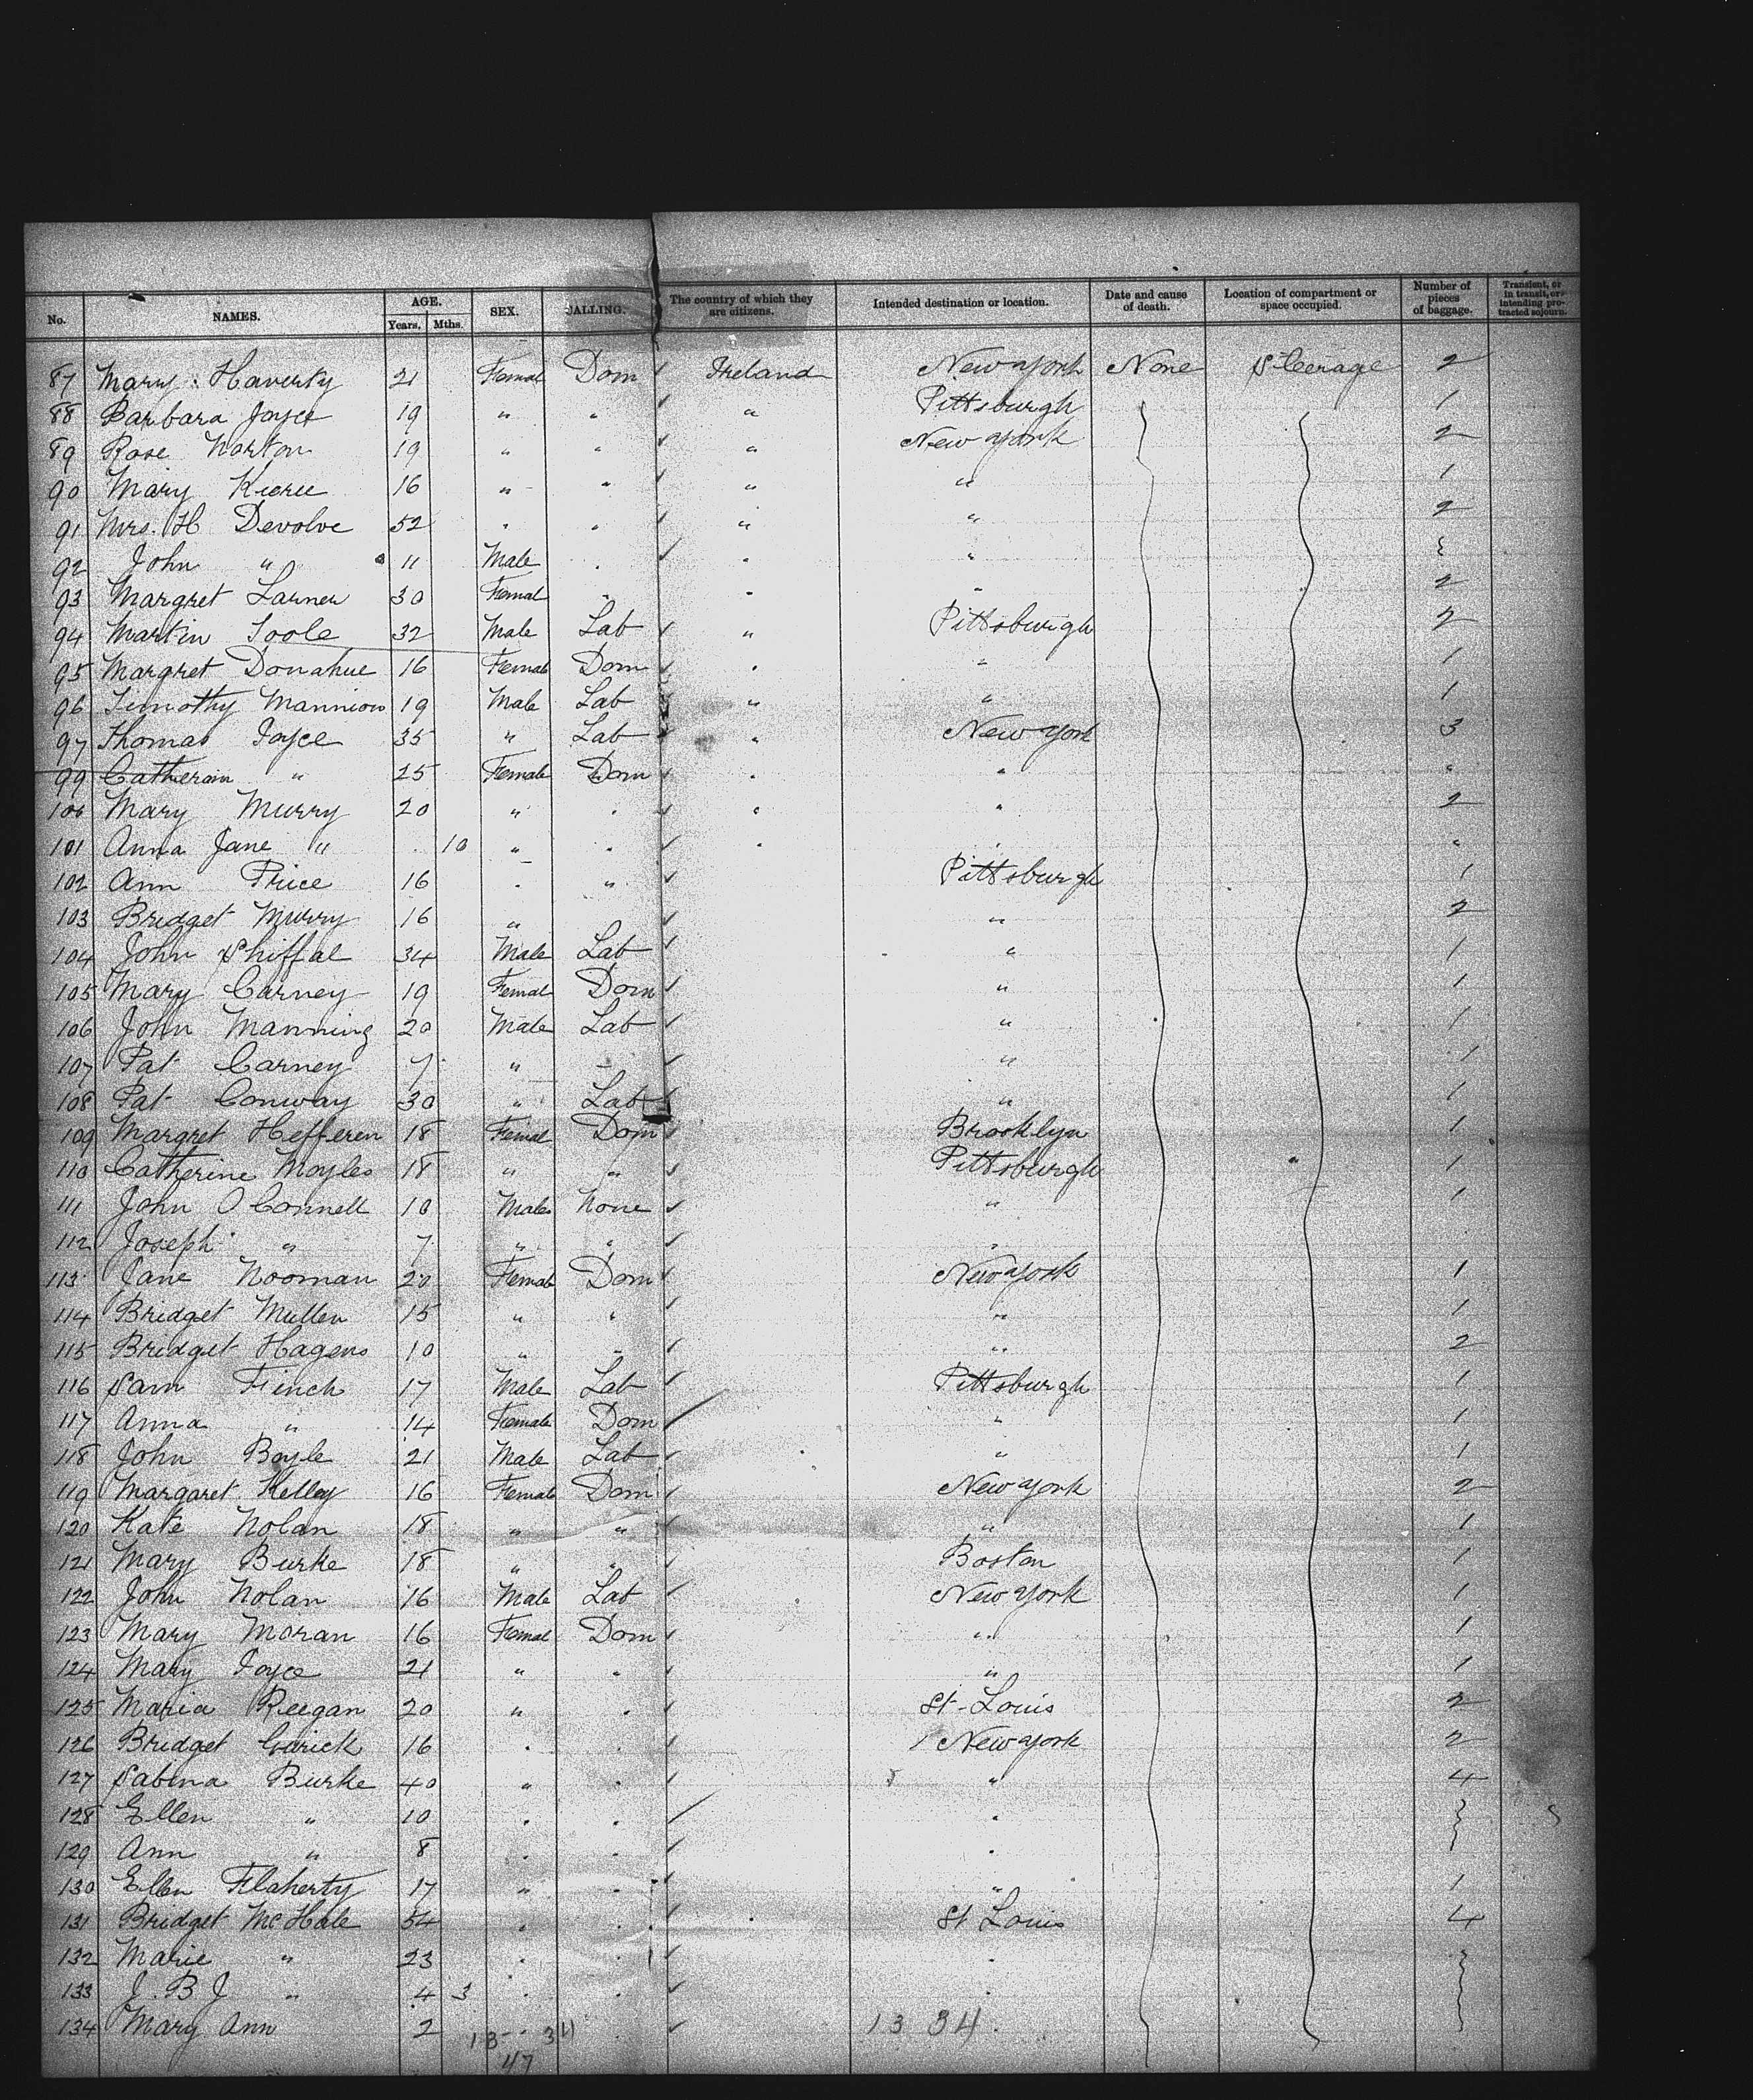 No. NAMES. AGE. Years. Mths. SEX. CALLING. The country of which they are citizens. Intended destination or location. Date and cause of death. Location of compartment or space occupied. Number of pieces of baggage. Transient, or in transit, or intending protracted sojourn.
87 Mary Haverty 21 Femal Dom Ireland New York None Steerage 2
88 Barbara Joyce 19 " " " Pittsburgh 1
89 Rose Norton 19 " " " New York 2
90 Mary 16 " " " " 1
91 Mrs. H Devolve 52 " " " " 2
92 John " 11 Male " " "
93 Margret Larner 30 Femal " " " 2
94 Martin Toole 32 Male Lab " Pittsburgh 2
95 Margret Donahue 16 Female Dom " " 1
96 Timothy Mannion 19 Male Lab " " 1
97 Thomas Joyce 35 " Lab " New York 3
99 Catherain " 25 Female Dom " " "
100 Mary Murry 20 " " " " 2
101 Anna Jane " 10 " " " " "
102 Ann Price 16 " " Pittsburgh 1
103 Bridget Murry 16 " " 2
104 John Shiffal 34 Male Lab " 1
105 Mary Carney 19 Femal Dom " 1
106 John Manning 20 Male Lab " 1
107 Pat Carney 7 " – " 1
108 Pat Conway 30 " Lab " 1
109 Margret Hefferen 18 Femal Dom Brooklyn 1
110 Catherine Moyles 18 " " Pittsburgh 1
111 John O Connell 10 Male None " 1
112 Joseph " 7 " " "
113 Jane Nooman 20 Female Dom New York 1
114 Bridget Mullen 15 " " " 1
115 Bridget Hagens 10 " " " 2
116 Sam Finch 17 Male Lab Pittsburgh 1
117 Anna " 14 Female Dom " 1
118 John Boyle 21 Male Lab " 1
119 Margaret Kelley 16 Female Dom New York 2
120 Kate Nolan 18 " " " 1
121 Mary Burke 18 " " Boston 1
122 John Nolan 16 Male Lab New York 1
123 Mary Moran 16 Femal Dom " 1
124 Mary Joyce 21 " " " 1
125 Maria Reegan 20 " " St-Louis 2
126 Bridget Garick 16 " " New York 2
127 Sabina Burke 40 " " " 4
128 Ellen " 10 " " "
129 Ann " 8 " " "
130 Ellen Flaherty 17 " " " 1
131 Bridget McHale 54 " " " St Louis 4
132 Marie " 23 " " "
133 J. B J " 4 3 " " "
134 Mary Ann 2 13 34 " 13 34
47